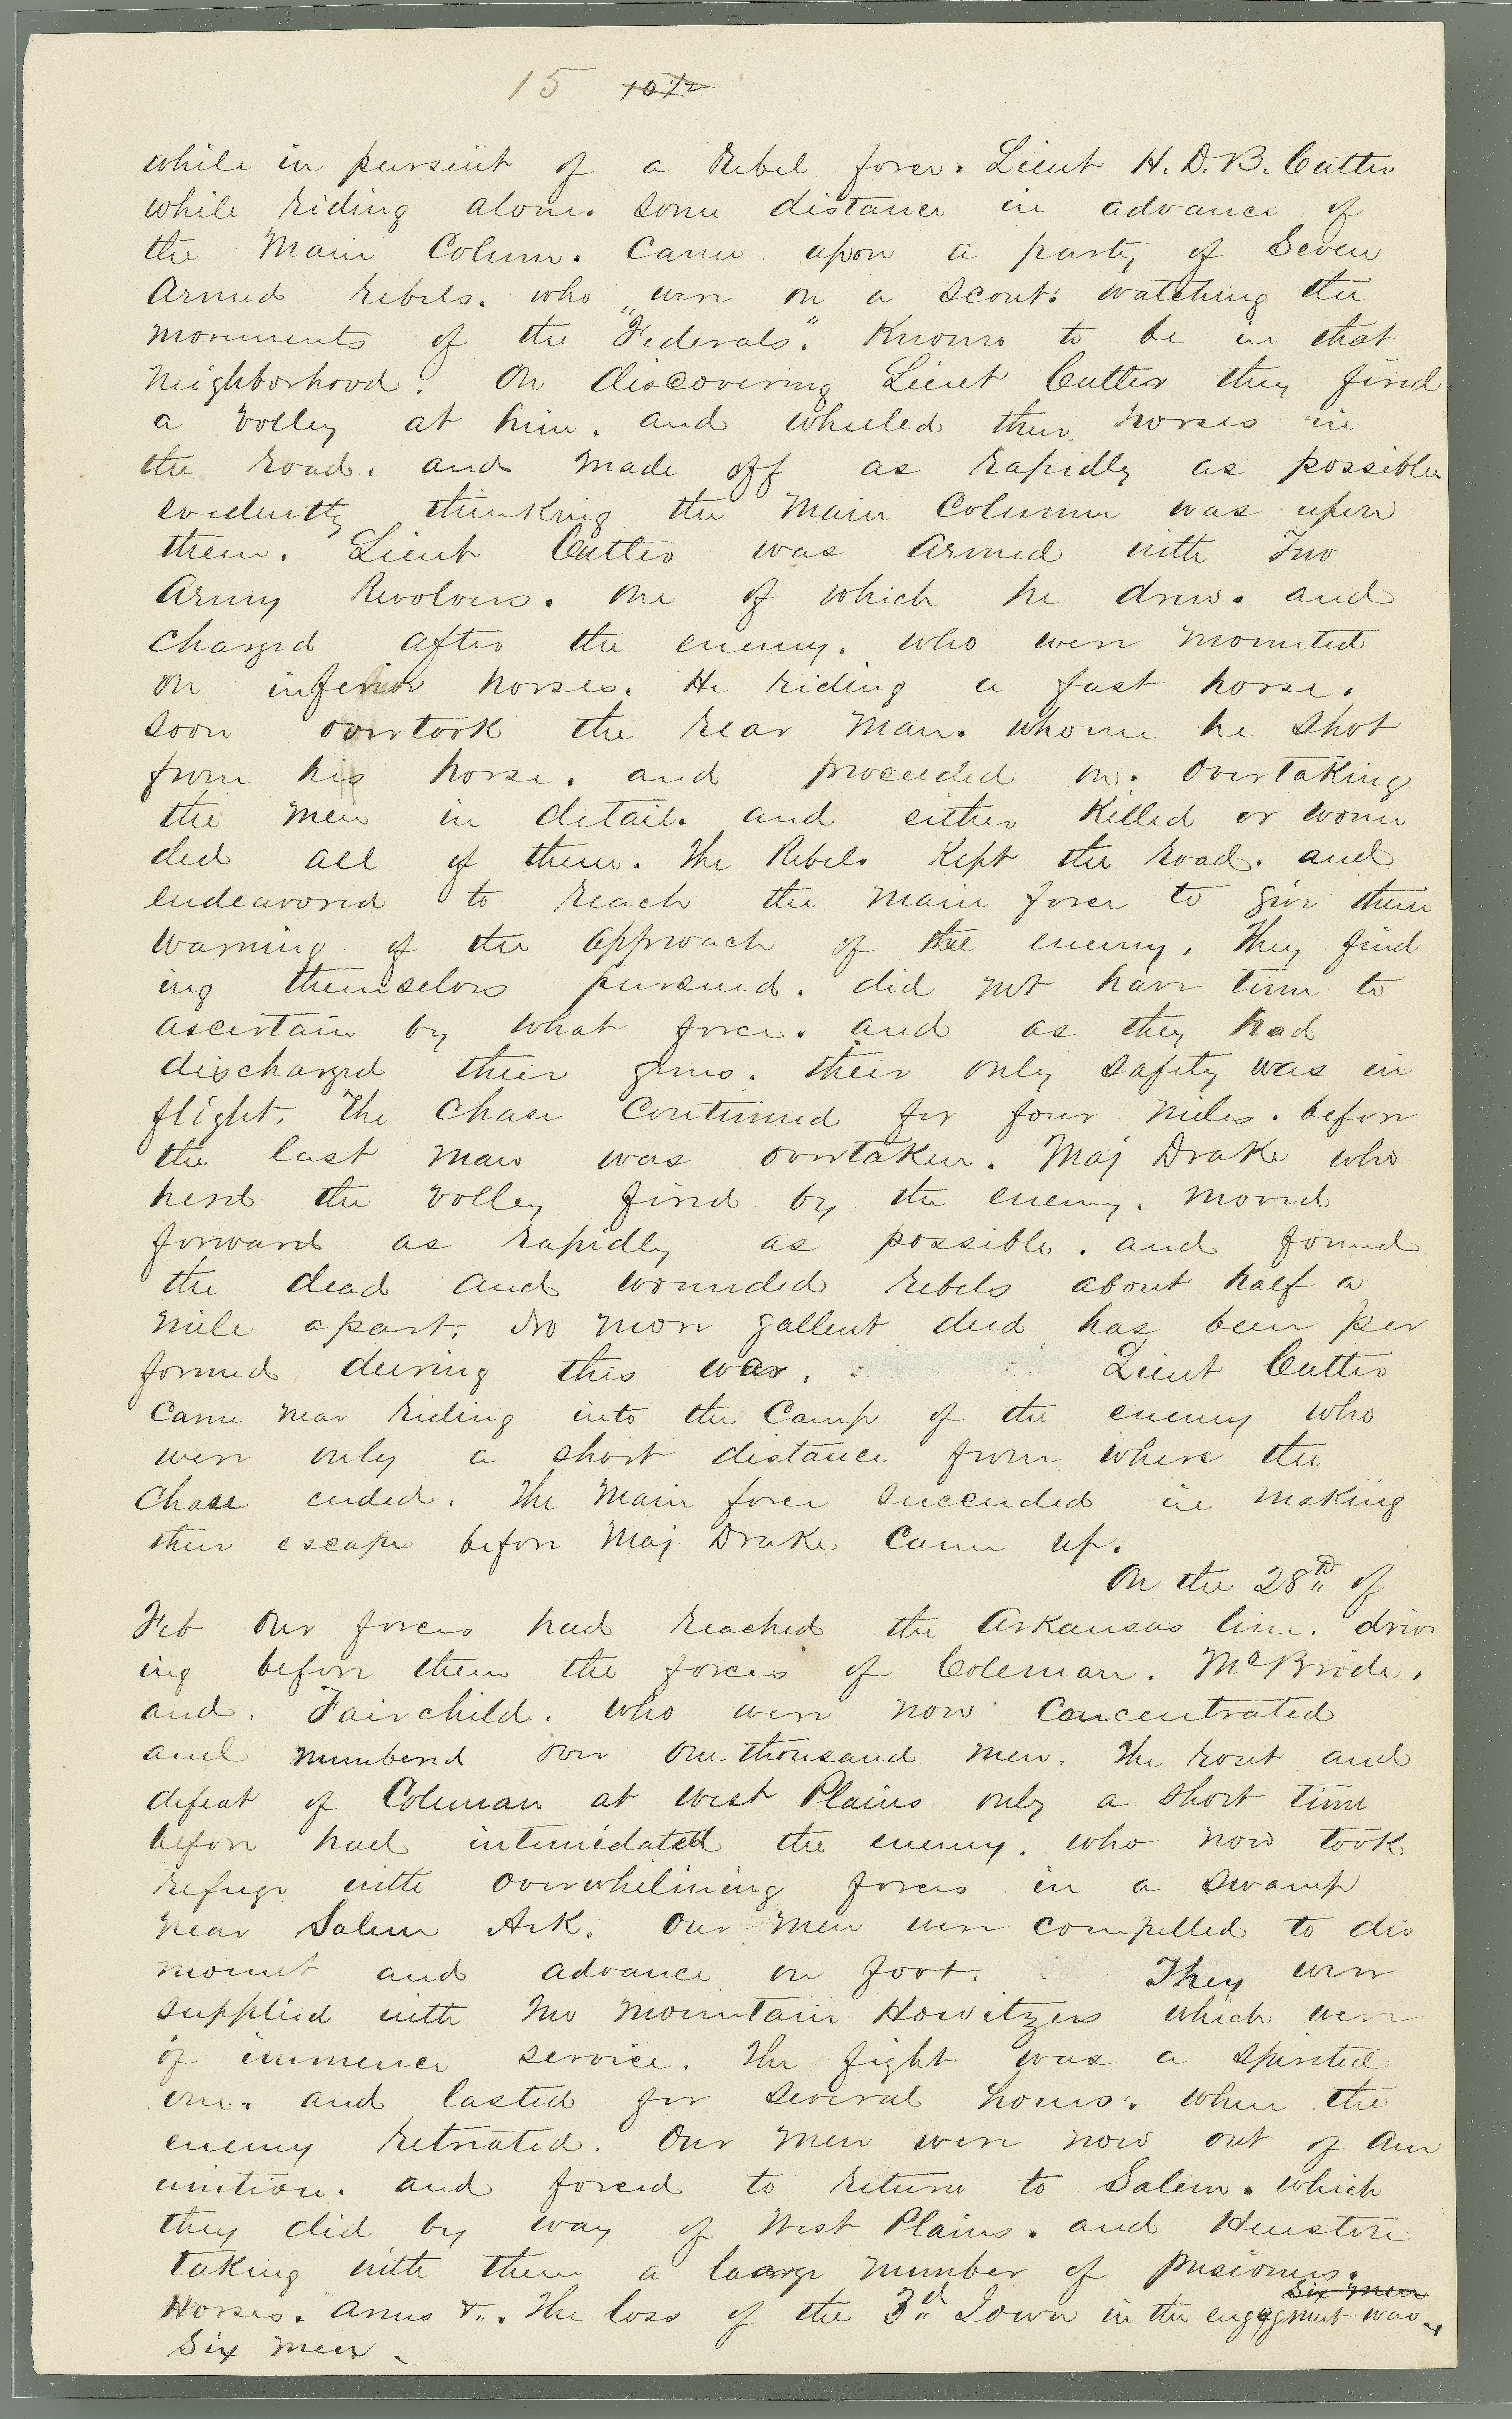 15 10 1/2
while in pursuit of a Rebel force. Lieut H. D. B. Cutler
while riding alone. some distance in advance of
the Main Colum. Came upon a party of Seven
Armed rebels. who were on a scout. watching the
movements of the "Federals". Known to be in that
Neighborhood. On discovering Lieut Cutler they fired
a volley at him, and wheeled their horses in
the road. and made off as rapidly as possible
evidently thinking the Main Column was upon
them. Lieut Cutler was Armed with Two
Army Revolvers. one of which he drew. and
charged after the enemy. who were mounted
on inferior horses. He riding a fast horse.
soon overtook the rear man. whome he shot
from his horse. and proceeded on. Overtaking
the men in detail. and either Killed or woun
ded all of them. The Rebels Kept the road. and
endeavored to reach the main force to give them
warning of the approach of the enemy. They find
ing themselves pursued. did not have time to
ascertain by what force. and as they had
discharged their guns. their only safety was in
flight. The Chase Continued for four miles. before
the last man was overtaken. Maj Drake who
herd the volley fired by the enemy. moved
forward as rapidly as possible. and found
the dead and wounded rebels about half a
mile apart. No more gallent deed has been per
formed during this war. Lieut Cutler
Came near riding into the Camp of the enemy who
were only a short distance from where the
Chase ended. The Main force succeeded in making
their escape before Maj Drake Came up.
On the 28th of
Feb Our forces had reached the Arkansas line. driv
ing before them the forces of Coleman. McBride,
and. Fairchild. who were now Concentrated
and numbered over one thousand men. The rout and
defeat of Coleman at West Plains only a short time
before had intimedated the enemy. who now took
refuge with overwhelming forces in a swamp
near Salem Ark. Our men were compelled to dis
mount and advance on foot. They were
supplied with two mountain Howitzers which were
of immence service. The fight was a spirited
one. and lasted for several hours. when the
enemy retreated. Our men were now out of Am
unition. and forced to return to Salem. which
they did by way of West Plains. and Heuston
taking with them a large number of prisioners.
Six men
Horses. Arms &". The loss of the 3rd Iowa in the engagment was
Six men